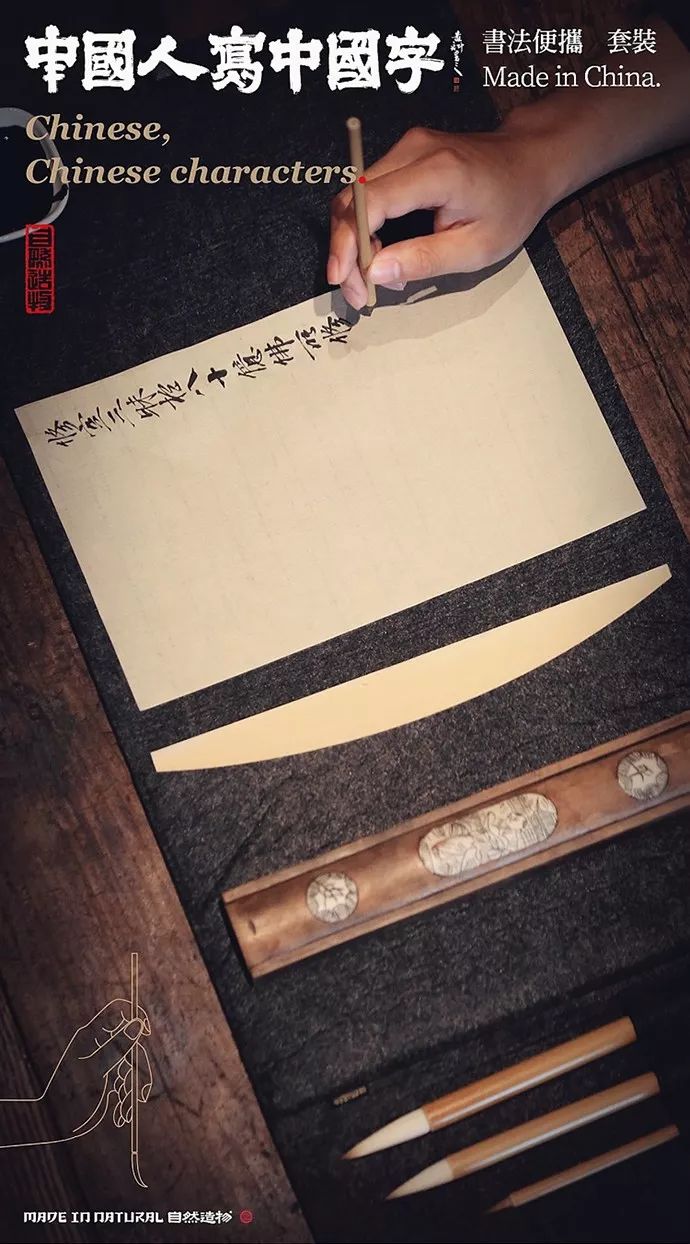 中國人寫中國字
書法便攜 套裝
Made in China.
Chinese,
Chinese characters.
自然造物
三昧於八十億佛所修
MADE IN NATURAL 自然造物